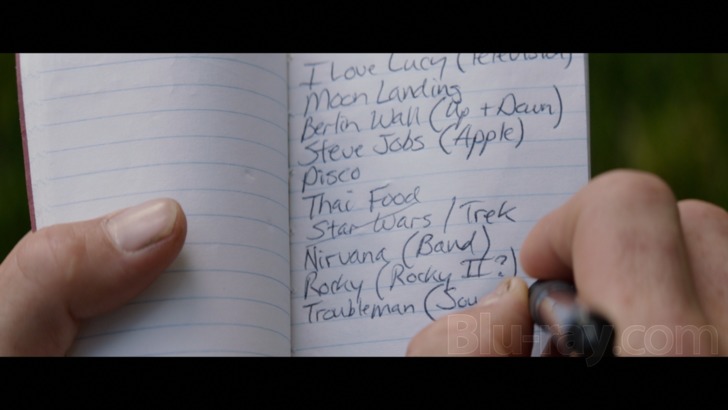 I Love Lucy (Television)
Moon Landing
Berlin Wall (Up + Down)
Steve Jobs (Apple)
Disco
Thai Food
Star Wars / Trek
Nirvana (Band)
Rocky (Rocky II?)
Troubleman (Sou
Blu-ray.com